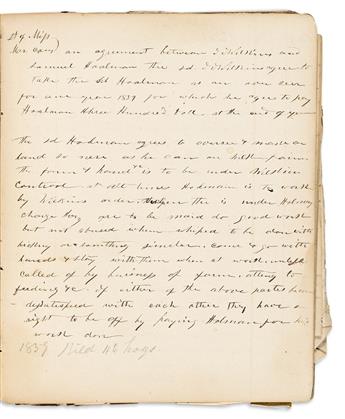 St of Miss
an agreement between J Wilkins and
Samuel Hoalman the sd J Wilkins agree to
take the sd Hoalman as an over seer
for one year 1839 for which he agre to pay
Hoalman three Hundred Doll. at the end of year
the sd Hoalman agrees to oversee & make on
land as near as he can on with farm
the farm & hands is to be under Wilkins
Controol at all times Holman is to work
by Wilkins order. when the is under Holman
charge they are to be maid do good work
but not abused when whiped to be don with
hickory or something similar. come & go with
hands & stay with them when at work unless
called of by business of farm. atteng to
feeding &c if either of the above parties becom
dissatisfied with each other they have a
right to be off by paying Holman for his
work don
1839 Kild 46 hogs